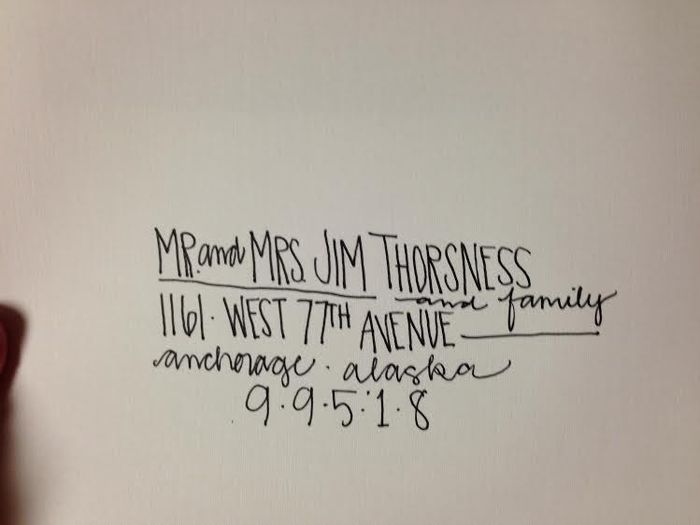 MR. and MRS. JIM THORSNESS
and family
1161 · WEST 77TH AVENUE
anchorage · alaska
9 · 9 · 5 · 1 · 8